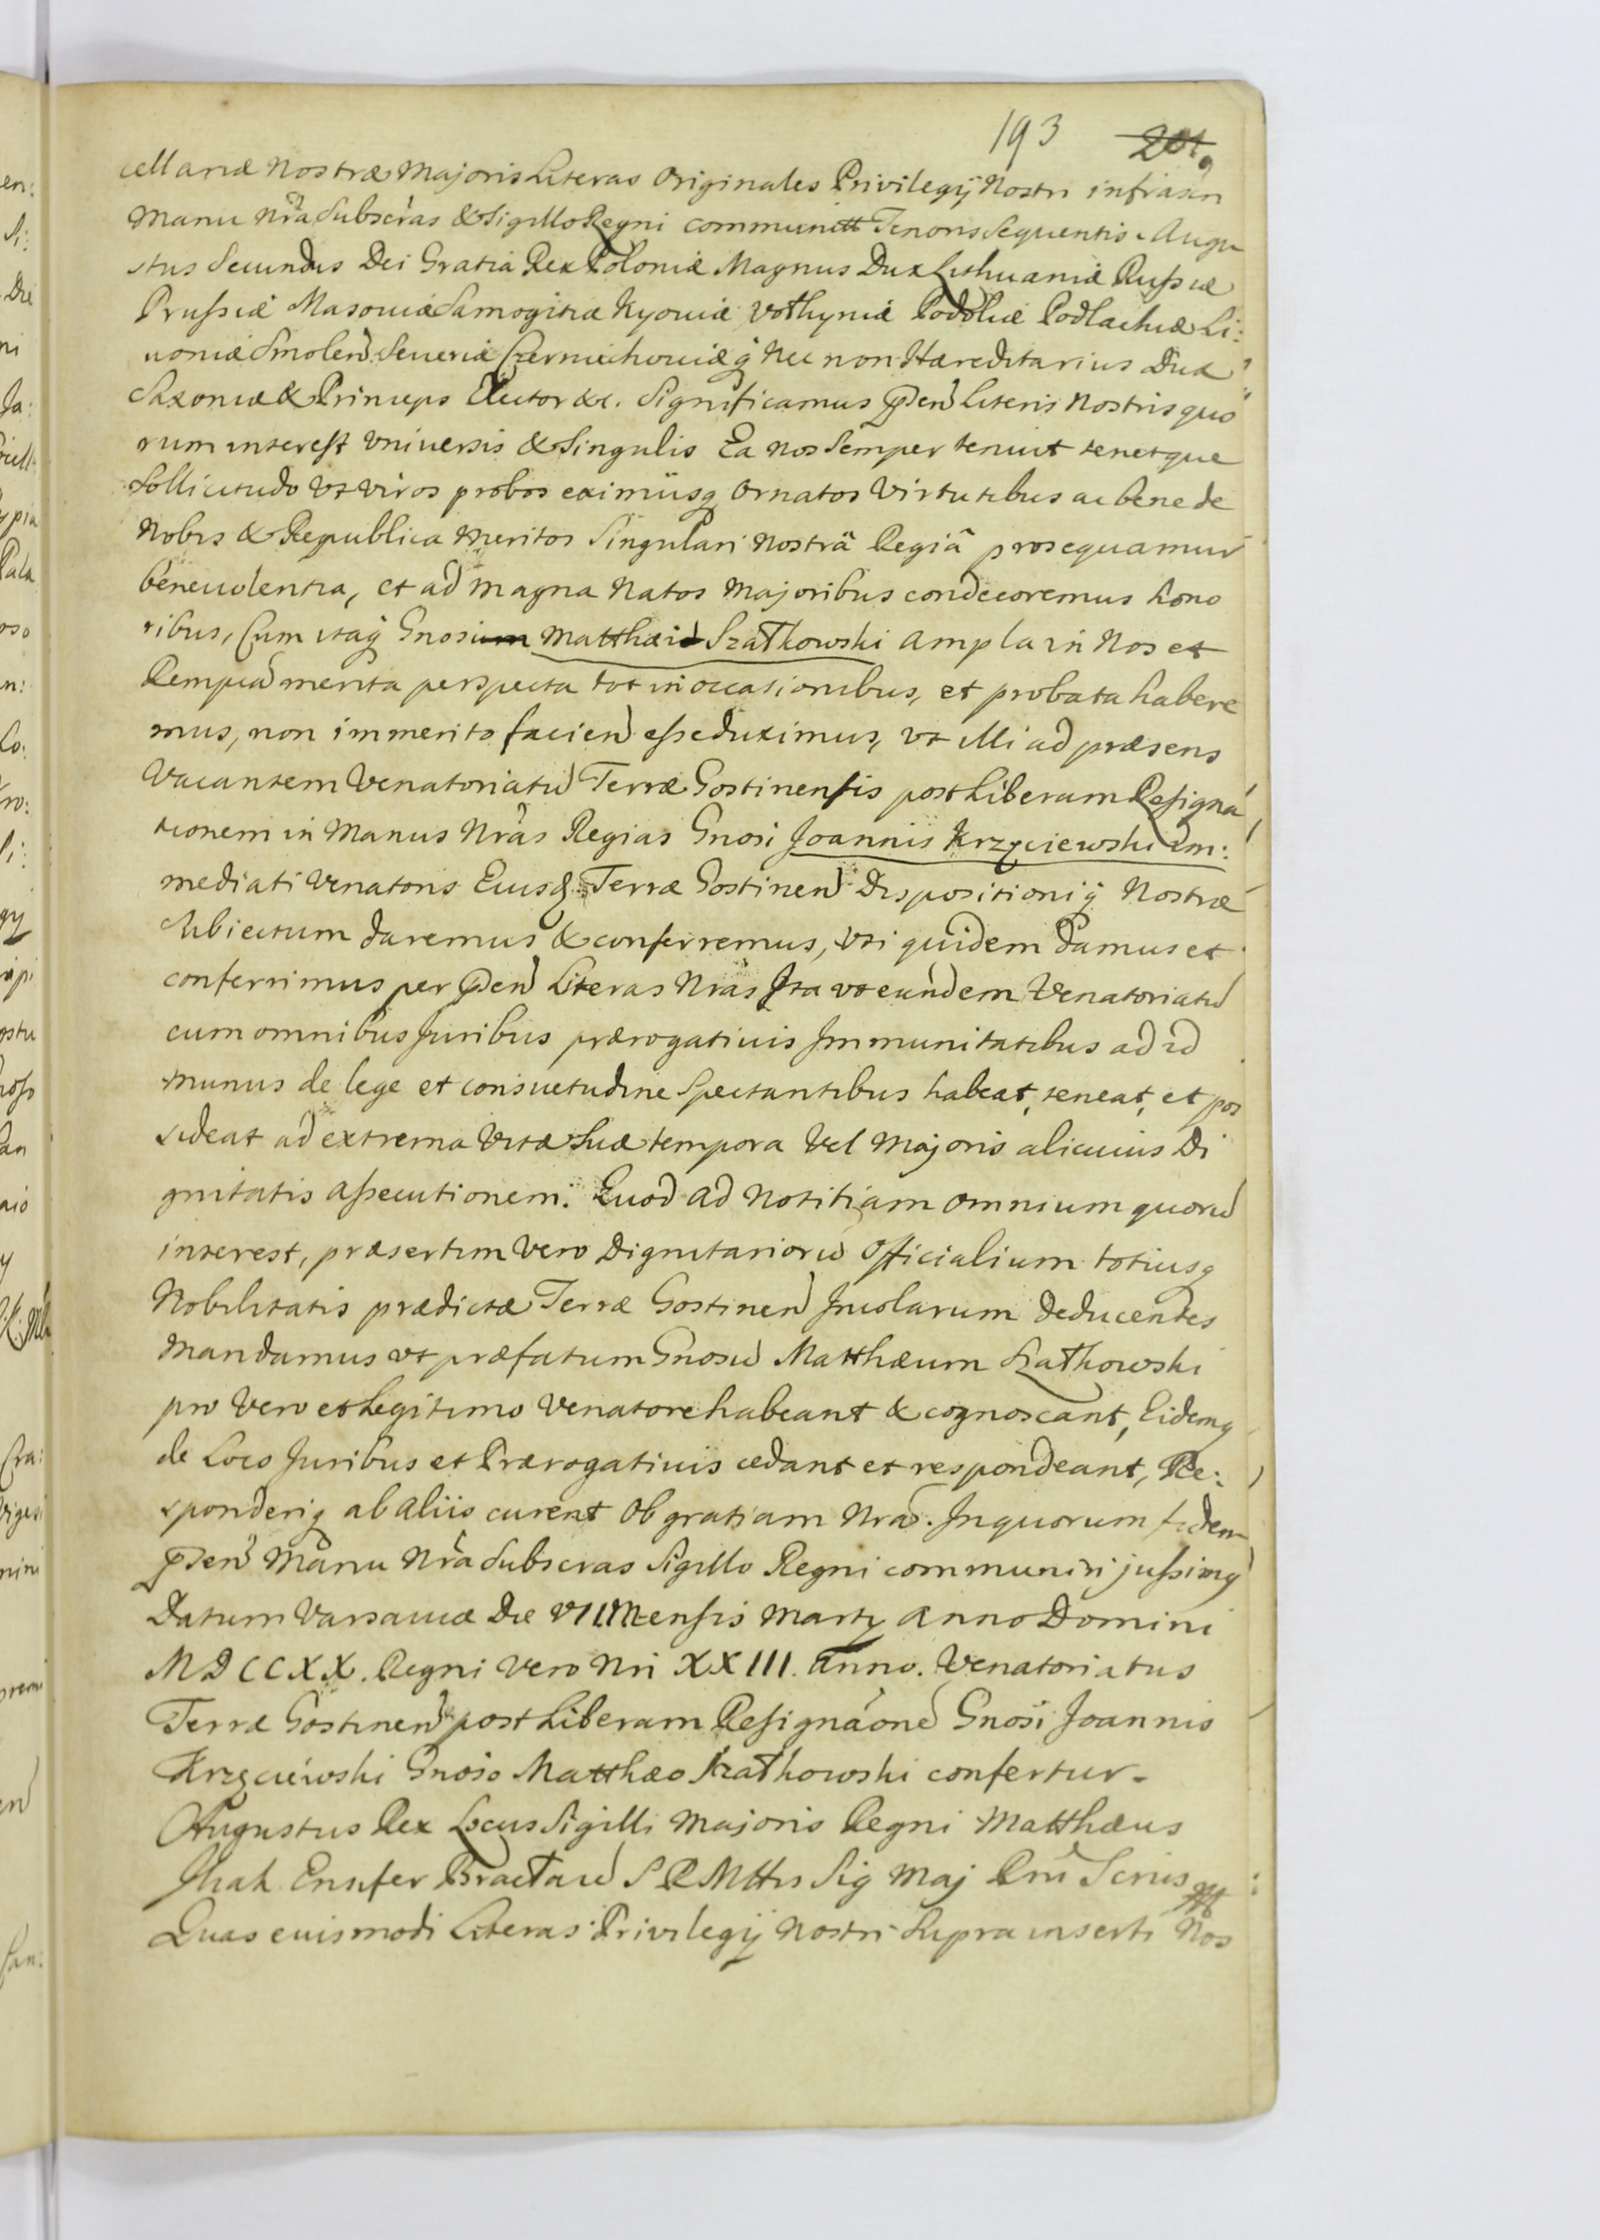 193 201.
cellariæ Nostræ Majoris Literas Originales Privilegij Nostri infrascri
Manu Nrã Subscras & Sigillo Regni communitt Tenoris Sequentis. Augu
stus Secundus Dei Gratia Rex Poloniæ Magnus Dux Lithuaniæ Russiæ
Prussiæ Masoviæ Samogitiæ Kyoviæ Vołhyniæ Podoliæ Podlachiæ Li:
voniæ Smolen Severiæ Czerniechoviæq Nec non Hæreditarius Dux
Saxoniæ & Princeps Elector &c. Significamus Pden Literis Nostris quo
rum interest Vniversis & Singulis Ea nos Semper tenuit tenetque
Sollicitudo Vt Viros probos eximiisq Ornatos Virtutibus ac bene de
Nobis & Republica Meritos Singulari Nostrâ Regiâ prosequamur
benevolentia, et ad magna Natos Majoribus condecoremus hono
ribus, Cum itaq Gnosi Matthæi Szałkowski ampla in Nos et
Rempcã merita perspecta tot in occasionibus, et probata habere
mus, non immerito facien esse duximus, vt illi ad præsens
Vacantem Venatoriatũ Terræ Gostinensis post Liberam Resigna
tionem in Manus Nrãs Regias Gnosi Joannis Krzyciewski Im:
mediati Venatoris Eiusd Terræ Gostinen Dispositioniq Nostræ
Subiectum daremus & conferremus, vti quidem Damus et
conferrimus per Pden Literas Nrãs Ita vt eundem Venatoriatũ
cum omnibus Juribus prærogativis Immunitatibus ad id
munus de lege et consuetudine Spectantibus habeat, teneat, et pos
sideat ad extrema Vitæ Suæ tempora Vel Majoris alicuius Di
gnitatis assecutionem. Quod ad Notitiam omnium quorũ
interest, præsertim Vero Dignitariorũ Officialium totiusq
Nobilitatis prædictæ Terræ Gostinen Incolarum Deducentes
Mandamus vt præfatum Gnosũ Matthæum Szałkowski
pro Vero et Legitimo Venatore habeant & cognoscant, Eidemq
de Loco Juribus et Prærogativis cedant et respondeant, Re:
sponderiq ab aliis curent Ob gratiam Nrã. In quorum fidem
Pden Manu Nrã Subscras Sigillo Regni communiri jussimq
Datum Varsaviæ Die VII Mensis Martij Anno Domini
MDCCXX. Regni Vero Nri XXIII. Anno. Venatoriatus
Terræ Gostinen post Liberam Resignãonẽ Gnosi Joannis
Krzyciewski Gnoso Matthæo Szałkowski confertur.
Augustus Rex Locus Sigilli Majoris Regni Matthæus
Ensifer Bracłaũ S R Mttis Sig Maj Rni Scrius
Quas euismodi Literas Privilegij Nostri Supra inserti Nos